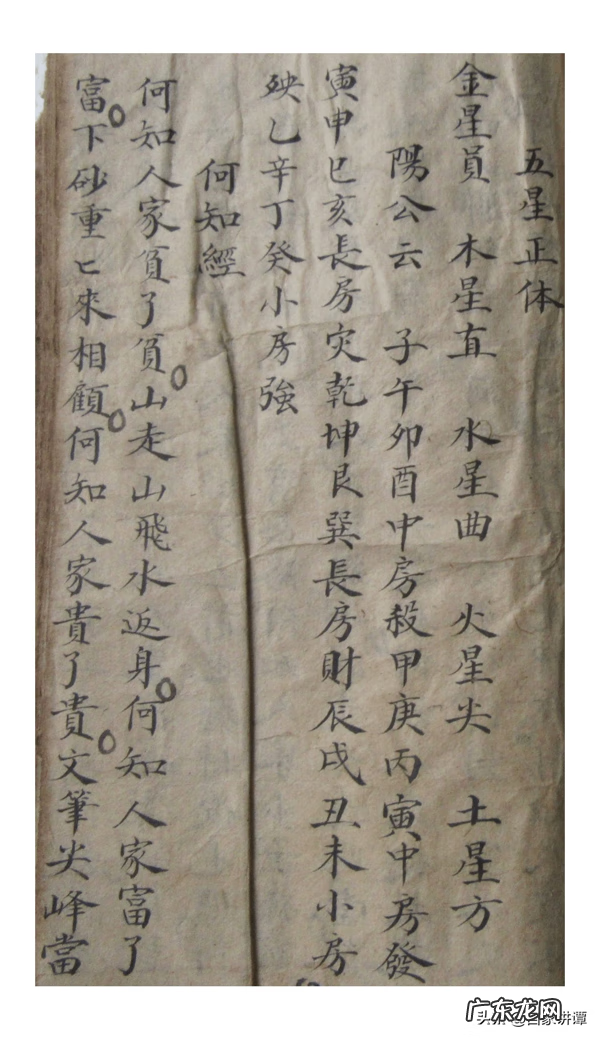 五星正体
金星員 木星直 水星曲 火星尖 土星方
陽公云 子午卯酉中房殺甲庚丙寅中房發
寅申巳亥長房灾乾坤艮巽長房財辰戌丑未小房
殃乙辛丁癸小房強
何知經
何知人家貧了貧。山走山飛水返身。何知人家富了
富。下砂重匕來相顧。何知人家貴了貴。文筆尖峰當
广东龙网